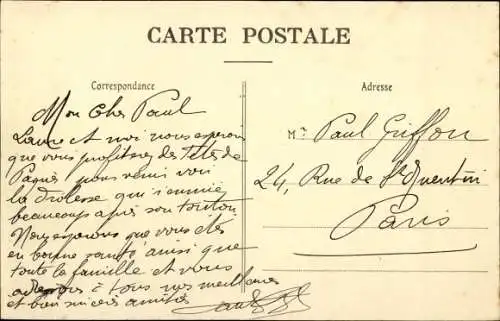 CARTE POSTALE
Correspondance
Adresse
Mon cher Paul
Laure et moi nous esperons
que vous profiterez des fêtes de
Paques pour venir voir
la drolesse qui s'ennuie
beaucoup après son tonton
Nous esperons que vous êtes
en bonne santé ainsi que
toute la famille et vous
adressons à tous nos meilleures
et bien sincères amitiés
Mr Paul Griffon
24, Rue de St Quentin
Paris